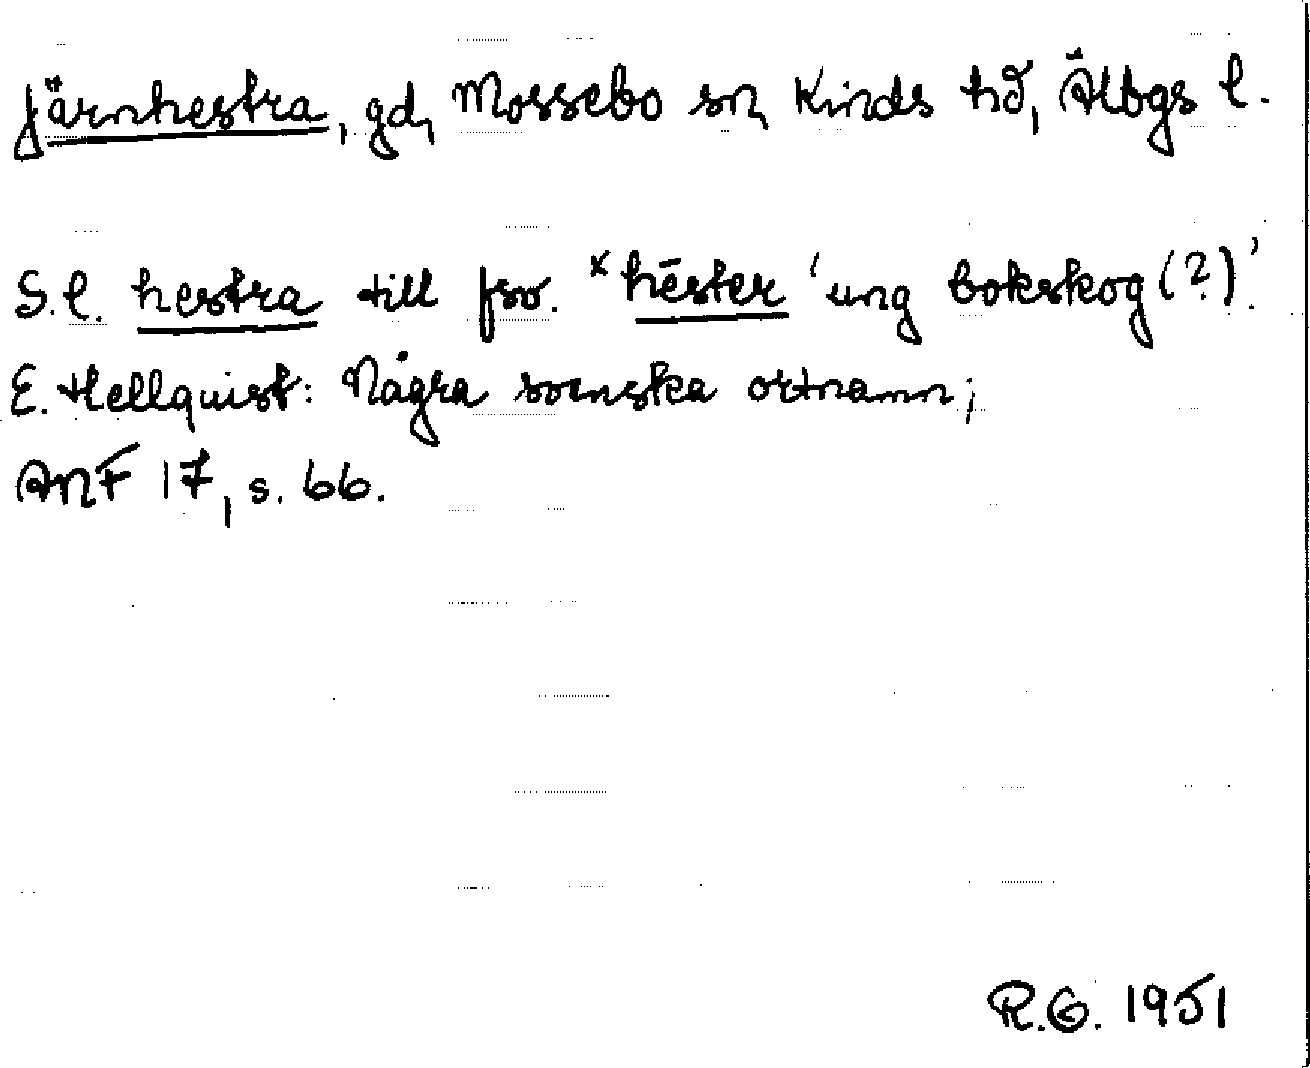 Järnhestra, gd, Mossebo sn, Kinds hd, Älbgs l.
S.l. hestra till fsv. *hēster 'ung bokskog(?)'.
E. Hellquist: Några svenska ortnamn;
ANF 17, s. 66.
R.G. 1951